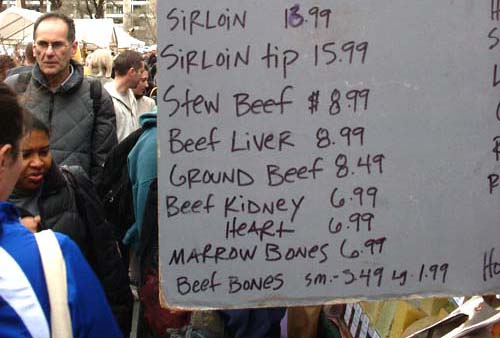 SIRLOIN 13.99
SIRLOIN tip 15.99
Stew Beef $ 8.99
Beef LIVER 8.99
GROUND Beef 8.49
Beef KIDNEY 6.99
HEART 6.99
MARROW BONES 6.99
Beef BONES sm.- 3.49 Lg. 1.99